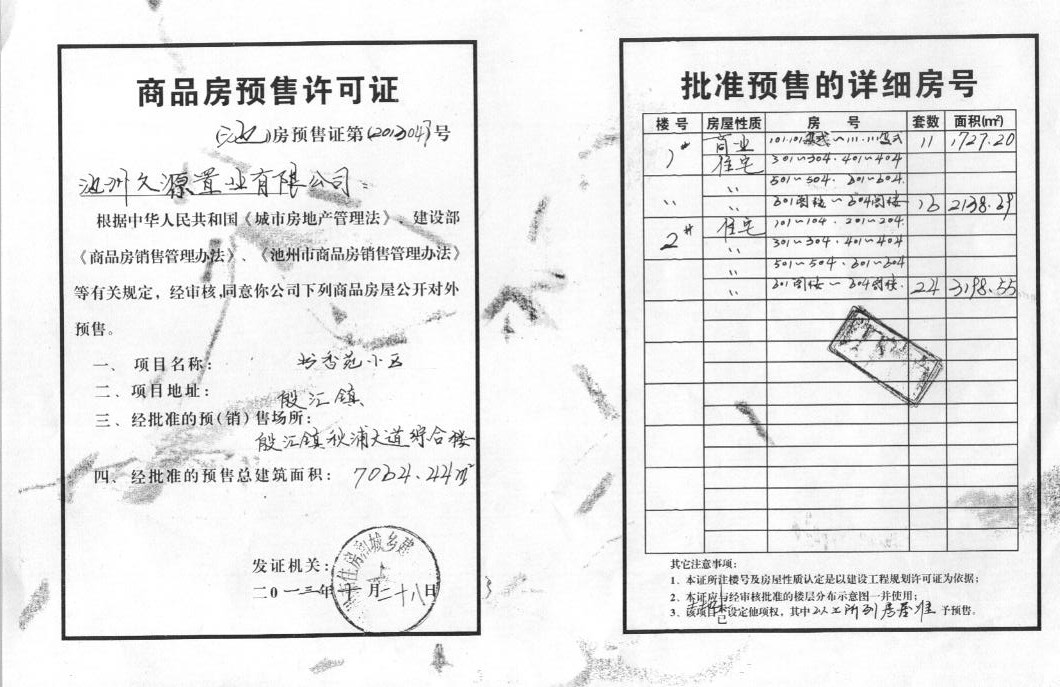 商品房预售许可证
房预售证第(2013043)号
池州久源置业有限公司:
根据中华人民共和国《城市房地产管理法》、建设部
《商品房销售管理办法》、《池州市商品房销售管理办法》
等有关规定,经审核,同意你公司下列商品房屋公开对外
预售。
一、项目名称: 书香苑小区
二、项目地址: 殷汇镇
三、经批准的预(销)售场所:
殷汇镇秋浦大道综合楼
四、经批准的预售总建筑面积: 7064.44㎡
发证机关:
二0一三年十一月二十八日
批准预售的详细房号
楼号 房屋性质 房 号 套数 面积(㎡)
1# 商业 101.101复式~111.111复式 11 1727.20
住宅 301~304.401~404
〃 501~504.601~604.
〃 〃 601阁楼~604阁楼 16 2138.69
2# 住宅 101~104.201~204.
〃 301~304.401~404
〃 501~504.601~604
〃 601阁楼~604阁楼. 24 3198.55
其它注意事项:
1、本证所注楼号及房屋性质认定是以建设工程规划许可证为依据;
2、本证应与经审核批准的楼层分布示意图一并使用;
3、该项目已设定他项权,其中以上所列房屋准予预售。